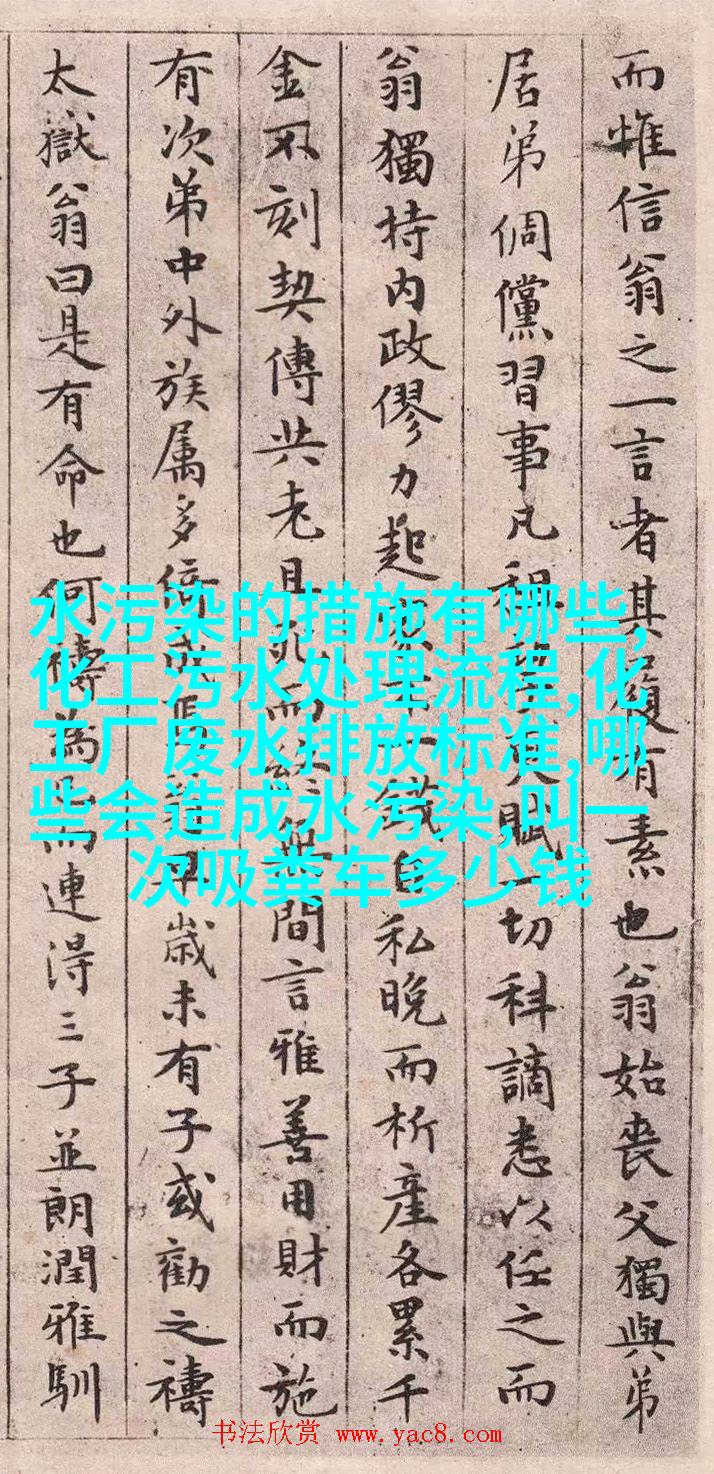 而惟信翁之一言者其履有素也翁始喪父獨與弟
居弟倜儻習事凡租
賦一切科謫悉以任之而
翁獨持内政僇力起家
錢自私晚而析產各累千
金不刻契傳共老且死而
無間言雅善用財而施
有次第中外族属多倚
歲未有子或勸之禱
太嶽翁曰是有命也何禱為
而連得三子並朗潤雅馴
水污染的措施有哪些,
化工污水处理流程,化
工厂废水排放标准,哪
些会造成水污染,叫一
次吸粪车多少钱
书法欣赏 www.yac8.com